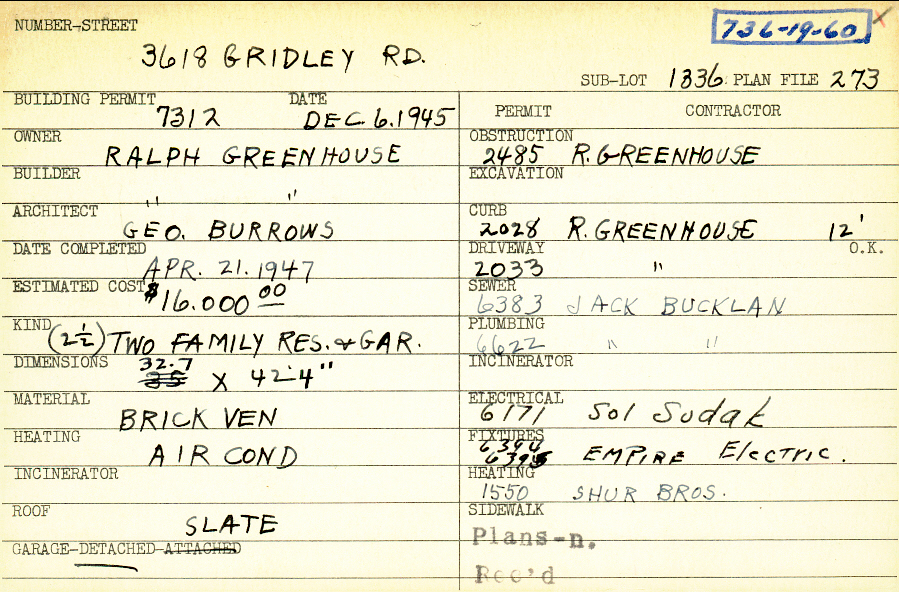 NUMBER-STREET
736-19-60 X
3618 GRIDLEY RD.
SUB-LOT 1336 PLAN FILE 273
BUILDING PERMIT 7312 DATE DEC. 6. 1945
OWNER RALPH GREENHOUSE
BUILDER " "
ARCHITECT GEO. BURROWS
DATE COMPLETED APR. 21. 1947
ESTIMATED COST $16.000 00
KIND (2½) TWO FAMILY RES. & GAR.
DIMENSIONS 32.7 35 X 42'-4"
MATERIAL BRICK VEN
HEATING AIR COND
INCINERATOR
ROOF SLATE
GARAGE-DETACHED-ATTACHED
PERMIT CONTRACTOR
OBSTRUCTION 2485 R. GREENHOUSE
EXCAVATION
CURB 2028 R. GREENHOUSE 12'
DRIVEWAY 2033 " O.K.
SEWER 6383 JACK BUCKLAN
PLUMBING 6622 " "
INCINERATOR
ELECTRICAL 6171 Sol Sudak
FIXTURES 6394 6395 EMPIRE Electric.
HEATING 1550 SHUR BROS.
SIDEWALK
Plans-n.
Rec'd